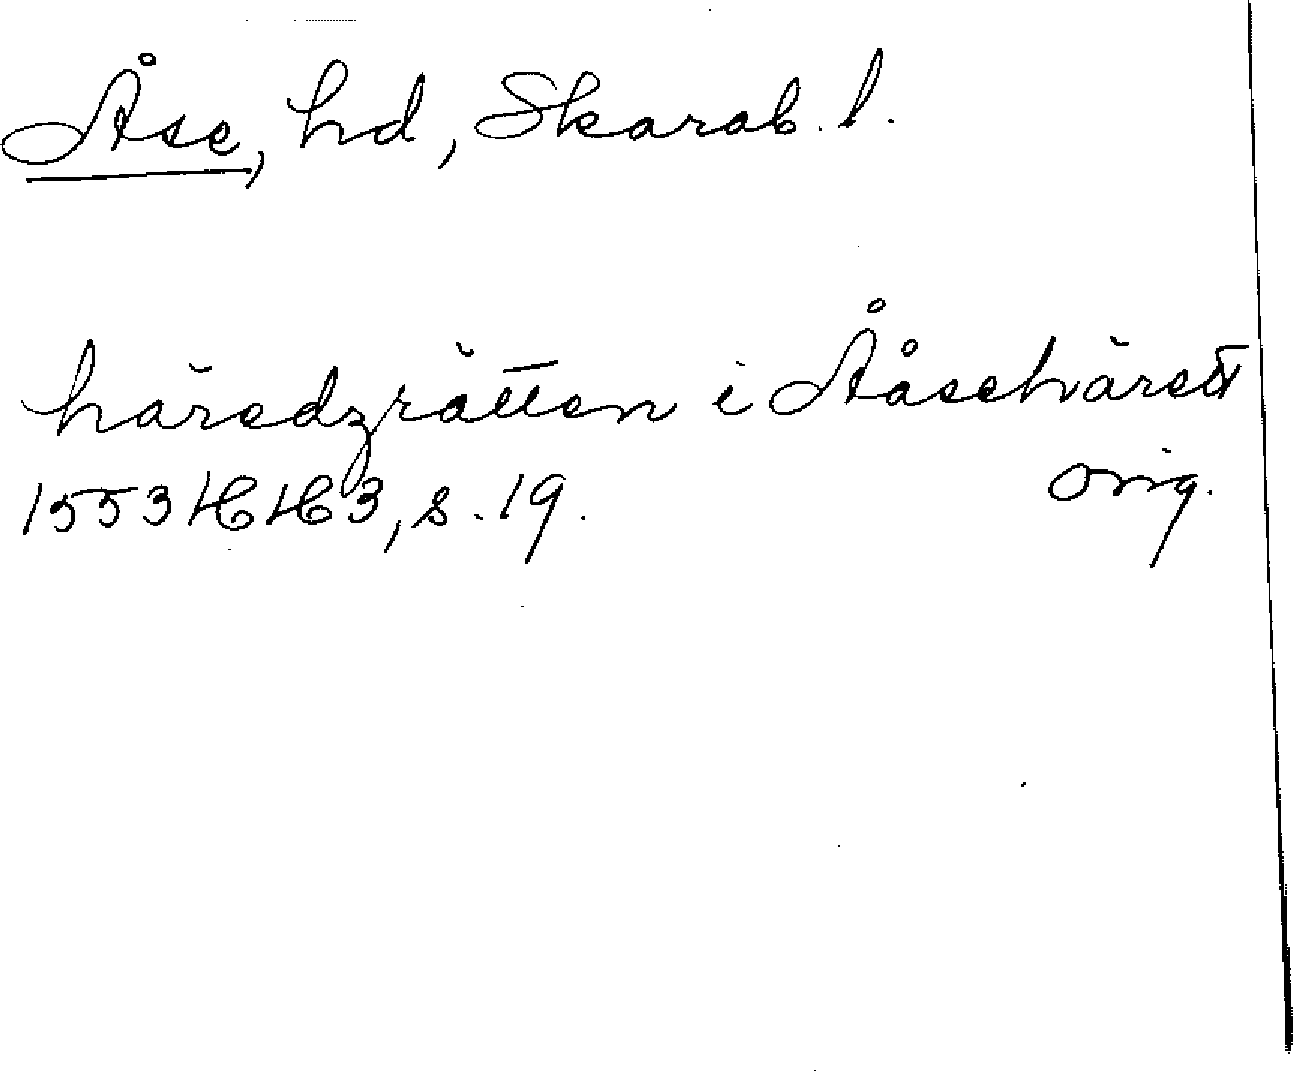 Åse, hd, Skarab. l.
häredzrätten i Ååsehäredt
1553 HH 3, s. 19. orig.